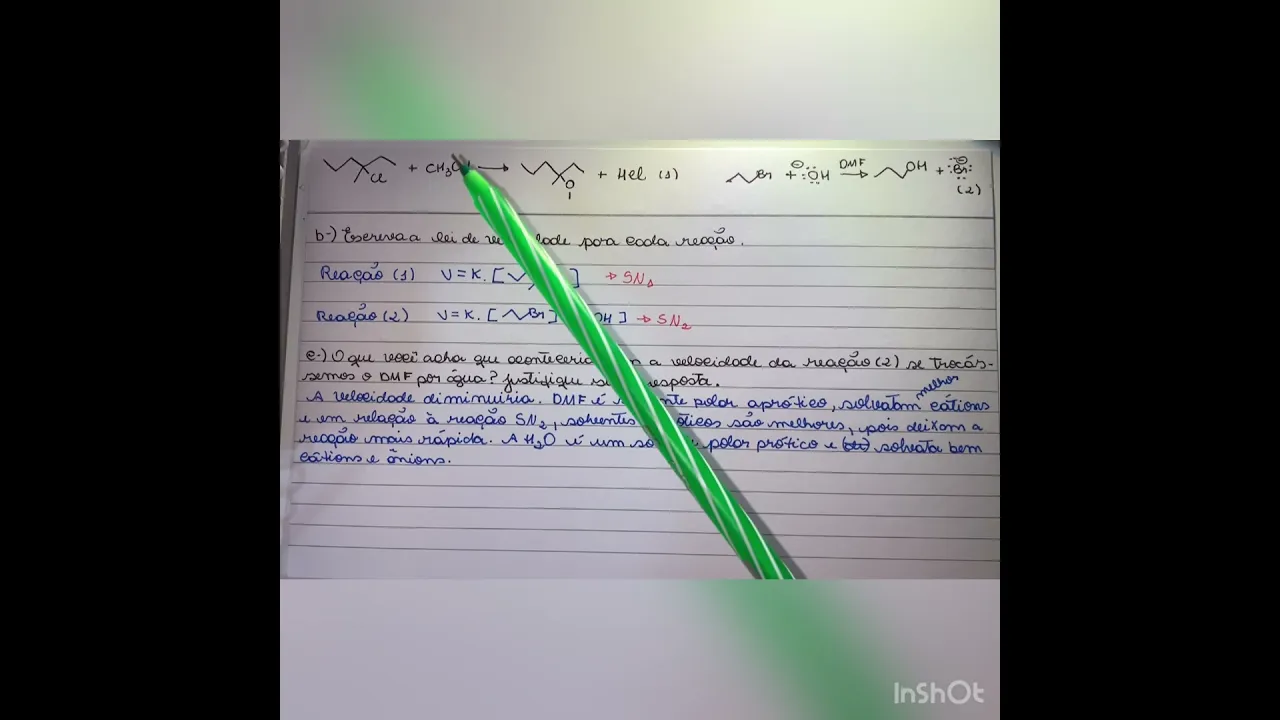 Cl + CH3O → O + HCl (1) Br + ⊖:ÖH DMF → OH + :Br:⊖ (2)
b-) Escreva a lei de ve dade para cada reação.
Reação (1) V = K. [ ] → SN1
Reação (2) V = K. [ Br] OH ] → SN2
c-) O que você acha que aconteceria a velocidade da reação (2) se trocás-
semos o DMF por água? Justifique resposta.
A velocidade diminuiria. DMF é nte polar aprótico, solvatam melhor cátions
e em relação à reação SN2, solventes óticos são melhores, pois deixam a
reação mais rápida. A H2O é um so polar prótico e solvata bem
cátions e ânions.
InShOt